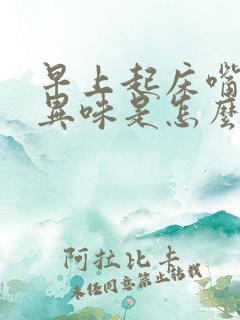 早上起床嘴
異味是怎麼
阿拉比卡
未经同意禁止转载